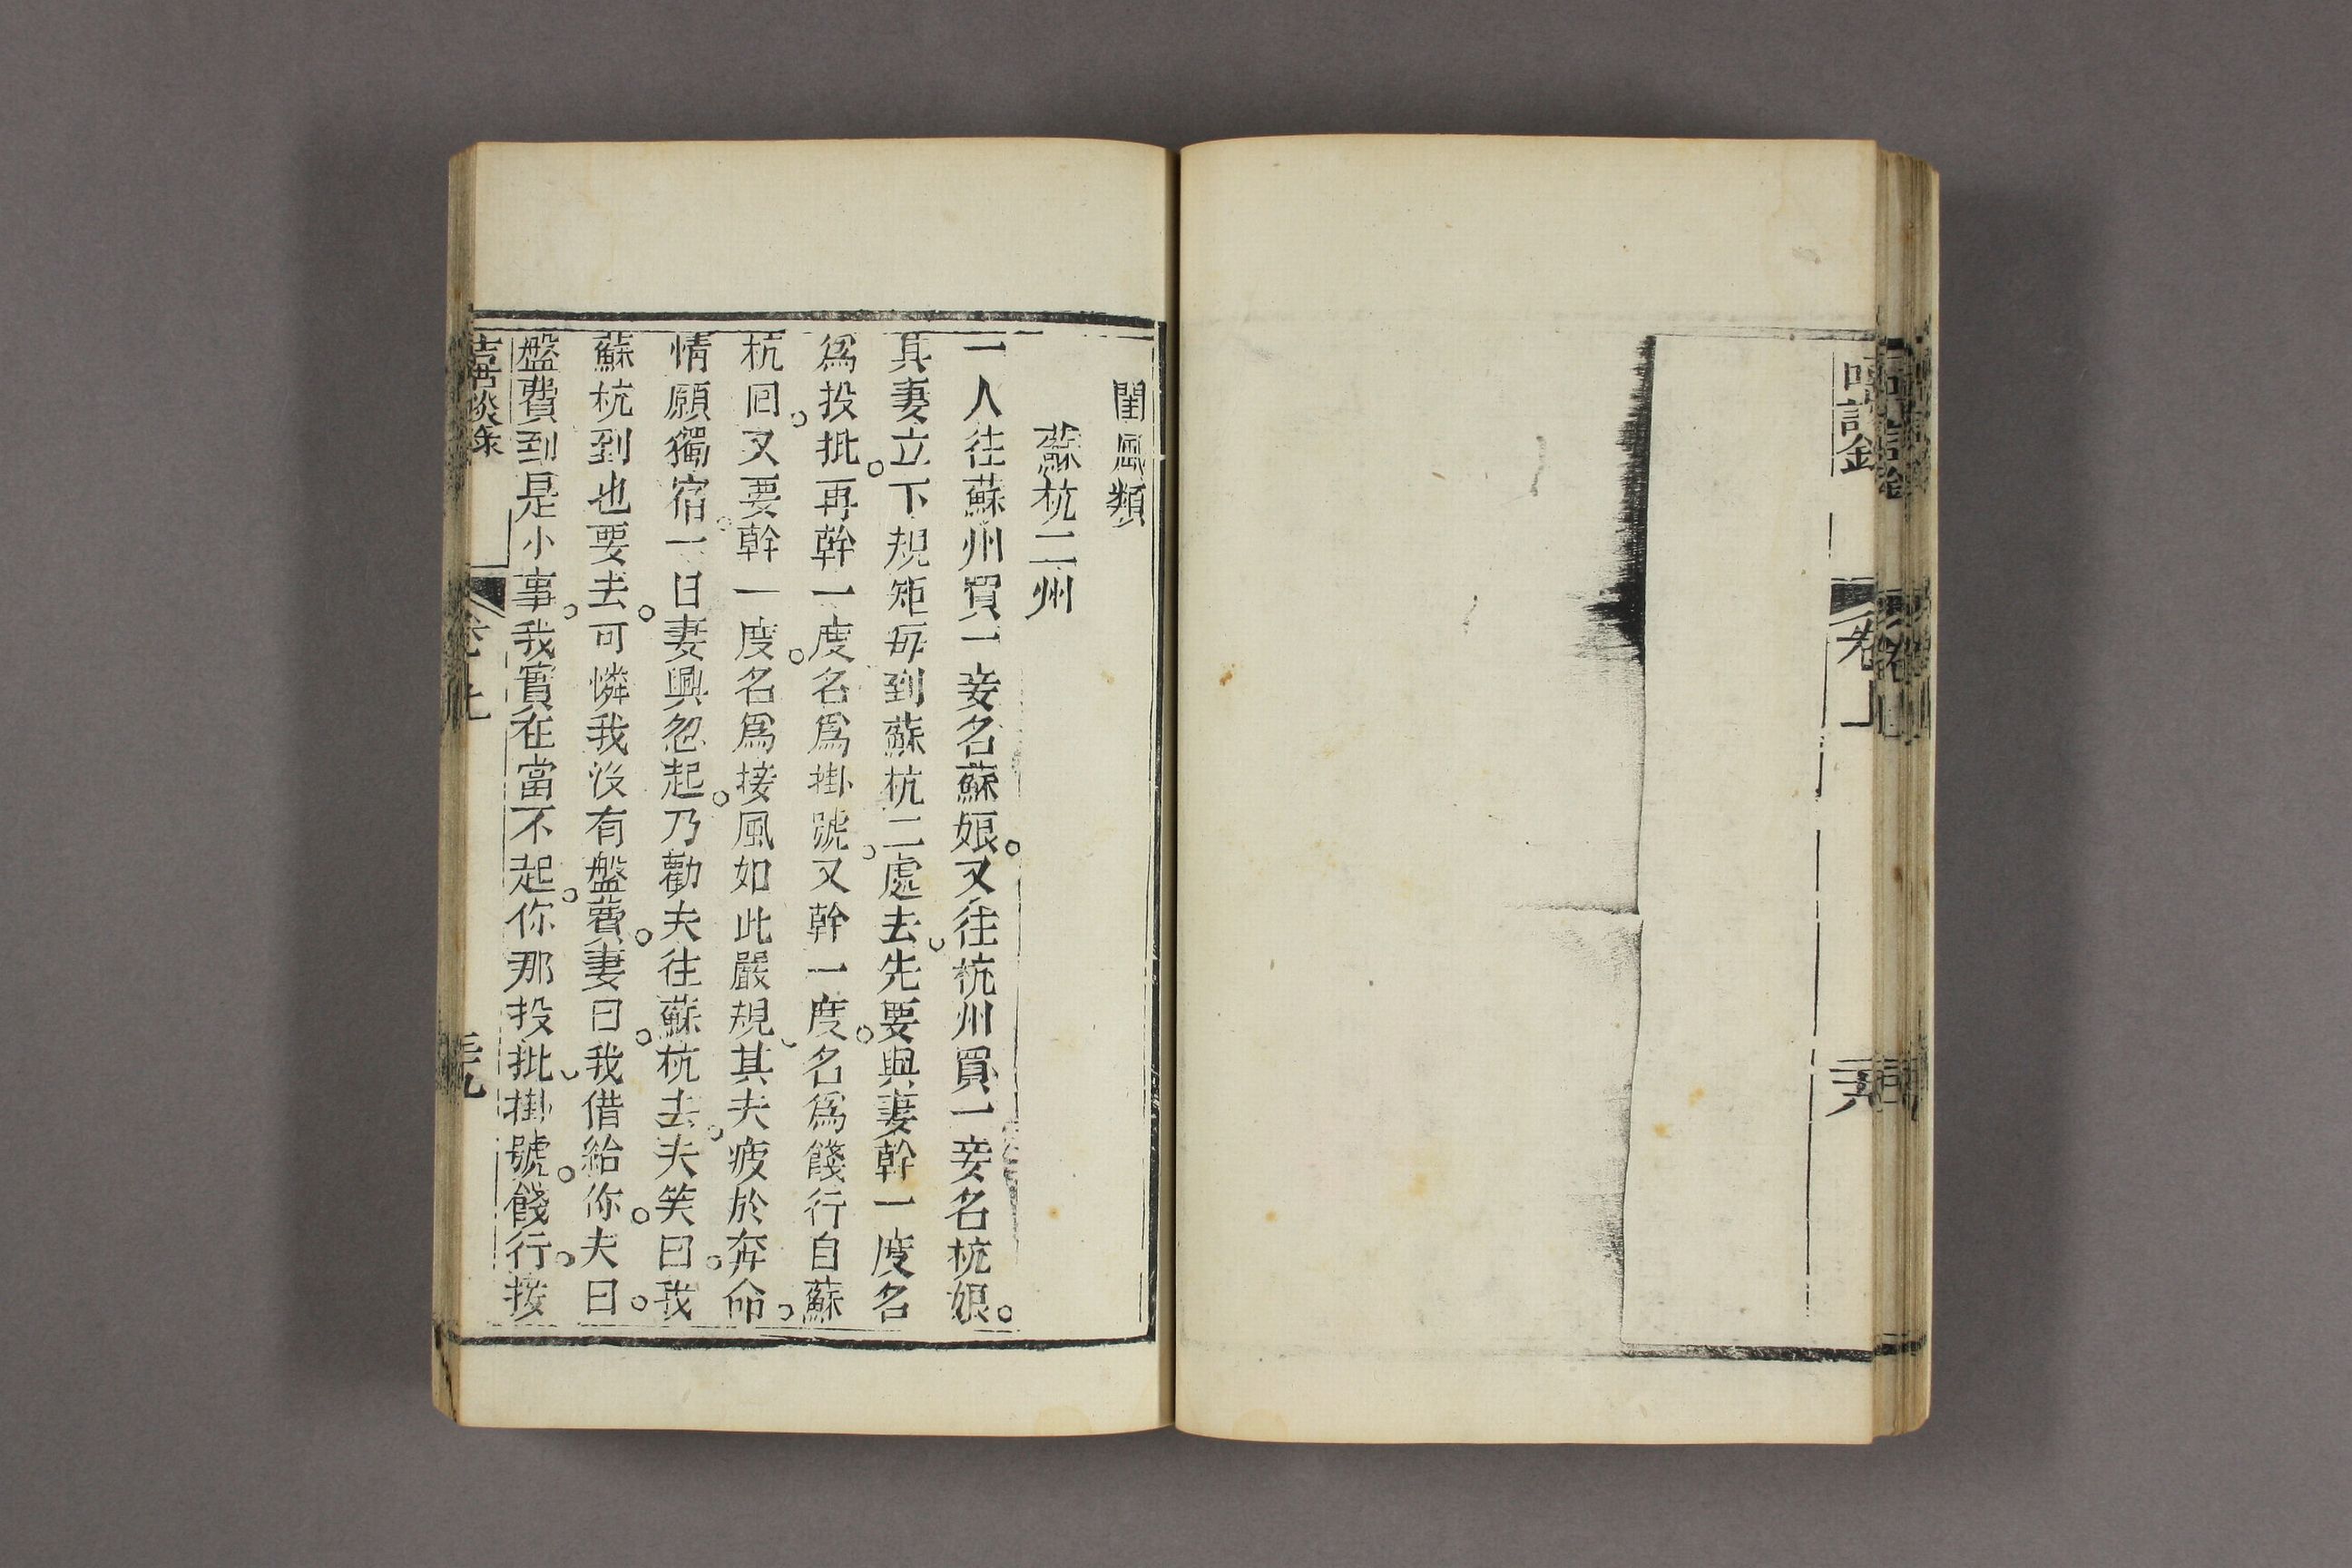 閨風類
蘇杭二州
一人往蘇州買一妾名蘇娘。又往杭州買一妾名杭娘。
其妻立下規矩每到蘇杭二處去。先要與妻幹一度名
爲投批。再幹一度名爲掛號。又幹一度。名爲餞行自蘇
杭回。又要幹一度。名爲接風如此嚴規。其夫疲於奔命。
情願獨宿。一日妻興忽起。乃勸夫往蘇杭去。夫笑曰。我
蘇杭到也要去。可憐我沒有盤費。妻曰。我借給你。夫曰。
盤費到是小事。我實在當不起。你那投批。掛號。餞行。接
三九